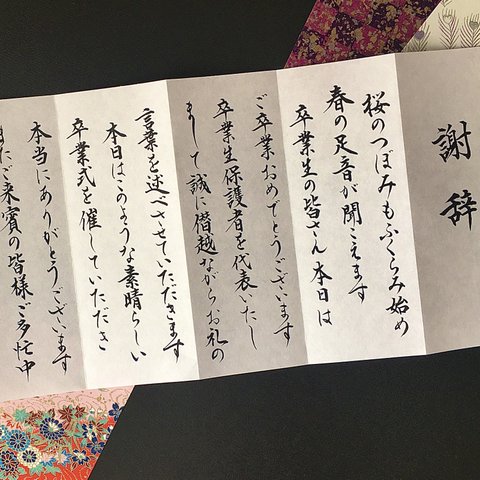 謝辞
桜のつぼみもふくらみ始め
春の足音が聞こえます
卒業生の皆さん本日は
ご卒業おめでとうございます
卒業生保護者を代表いたし
まして誠に僭越ながらお礼の
言葉を述べさせていただきます
本日はこのような素晴らしい
卒業式を催していただき
本当にありがとうございます
またご来賓の皆様ご多忙中